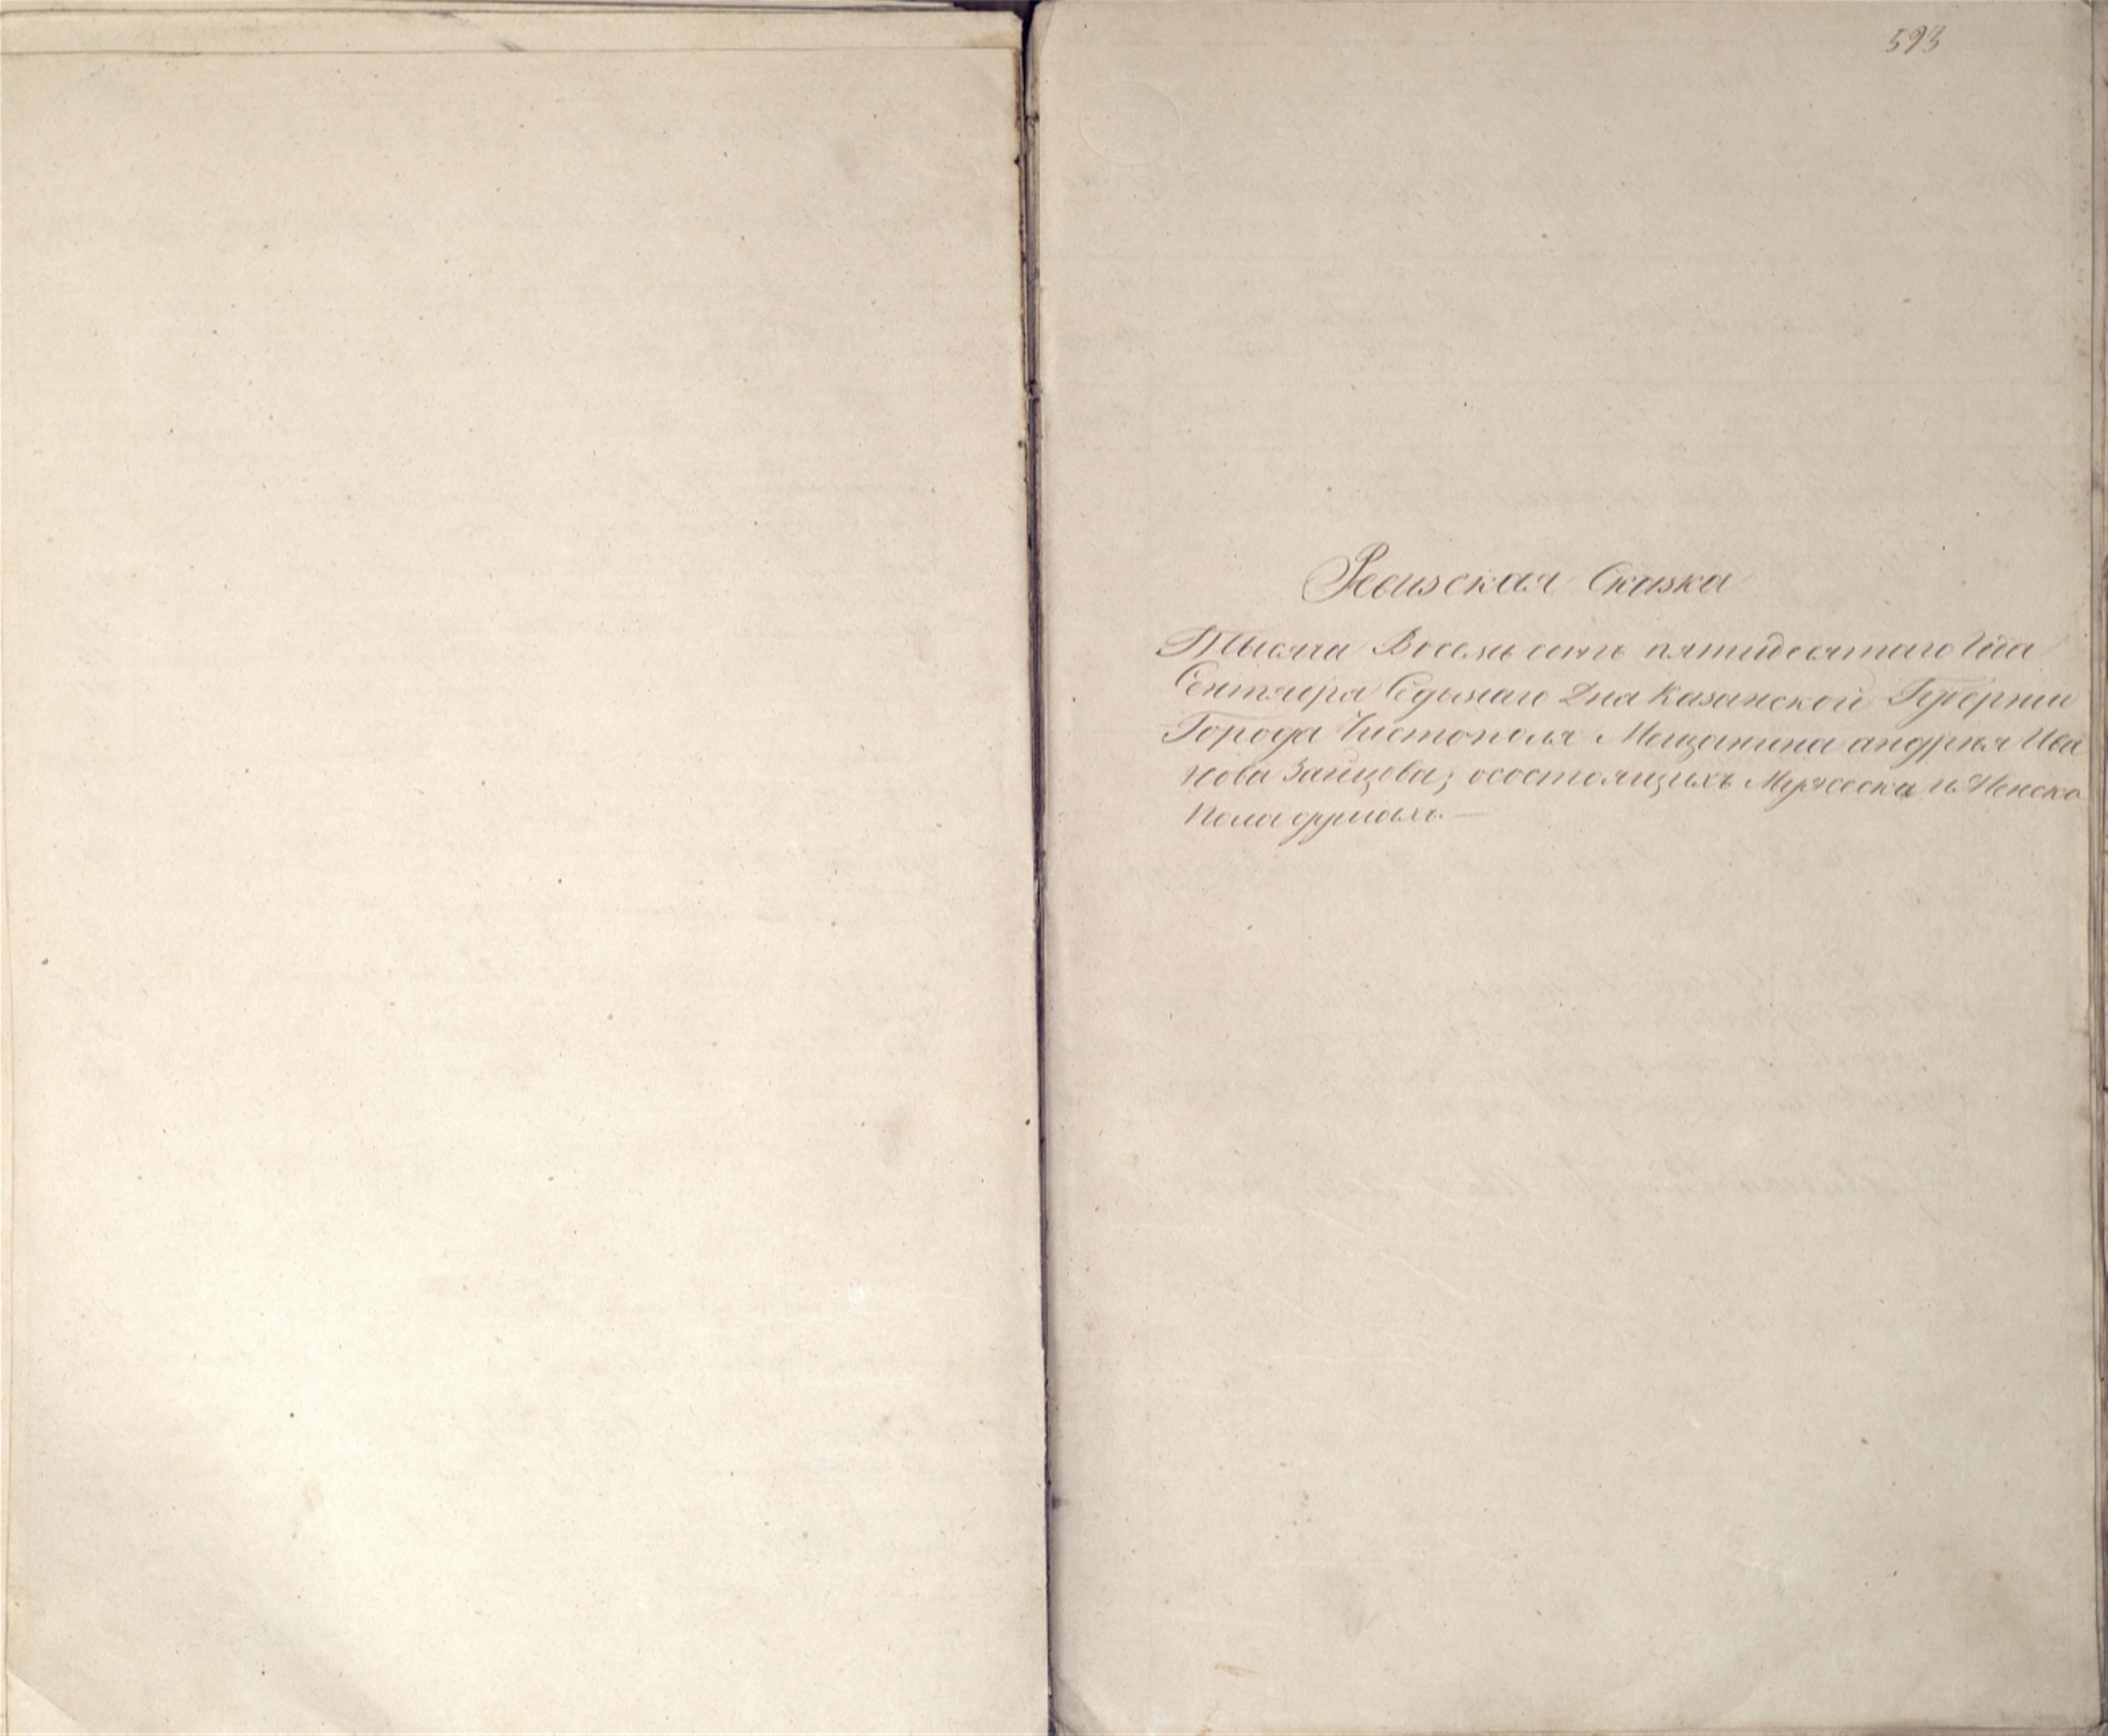 593
Ревизская Сказка
Тысяча Восемь сотъ пятидесятаго Года
Сентября Седьмаго Дня Казанской Губернии
Города Чистополя Мещанина андрея Ива
нова Зайцова; осостоящихъ Мужеска и Женска
Пола душахъ. —